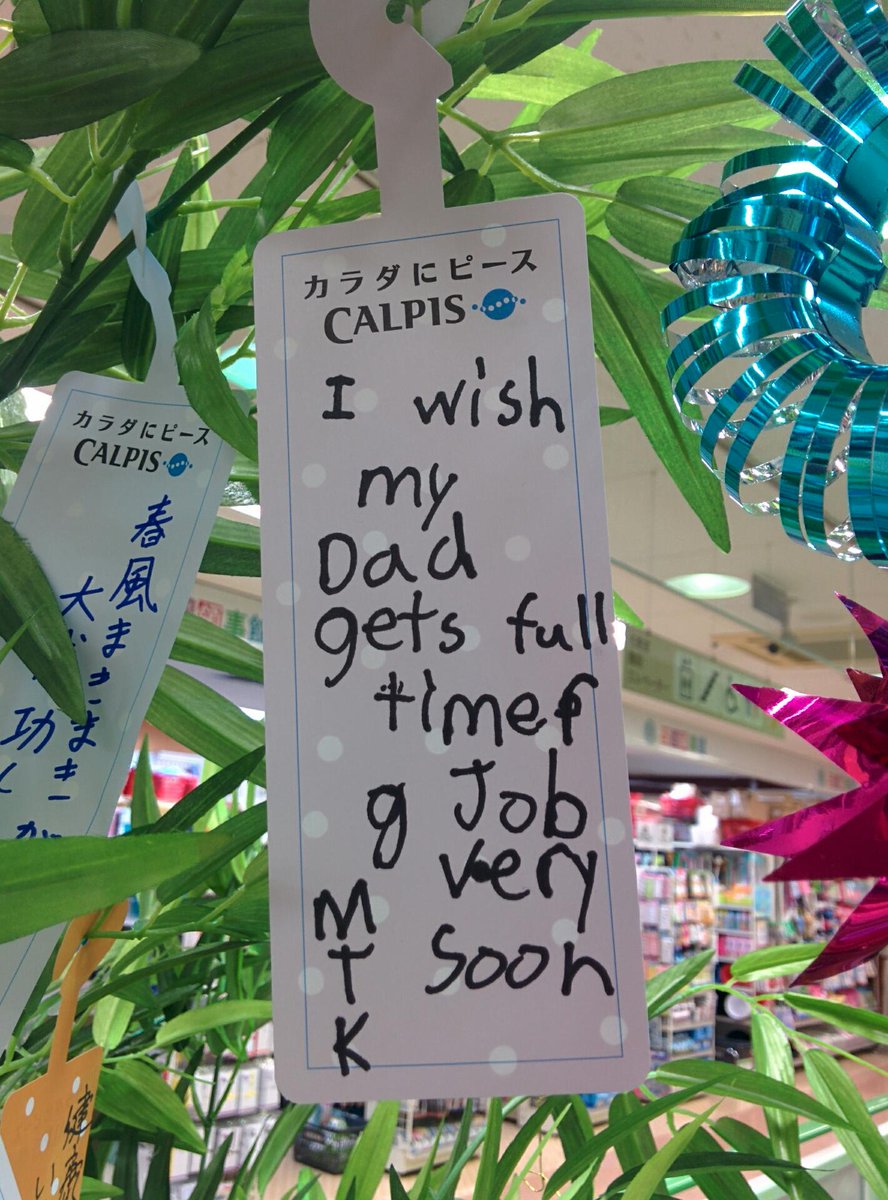 カラダにピース
CALPIS
I wish
my
Dad
gets full
timef
g Job
very
soon
M
T
K
カラダにピース
CALPIS
春風まきまき
大
功
健康